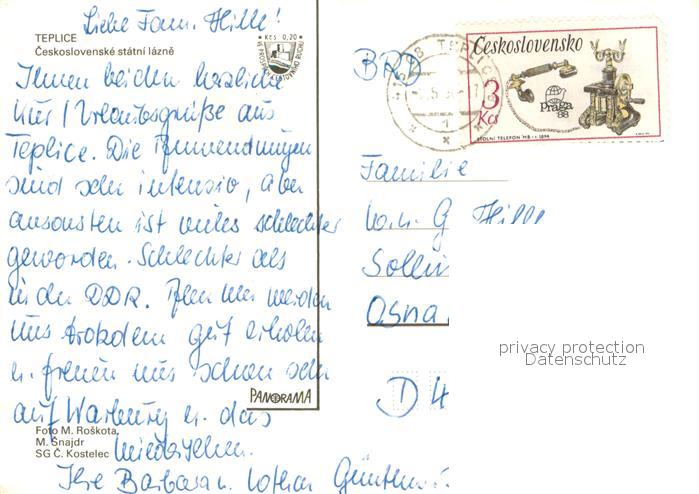 Liebe Fam. Hille!
TEPLICE
Československé státní lázně
Kčs 0,20
VE PROSPĚCH CESTOVNÍHO RUCHU
Ihnen beiden herzliche
Kur/Urlaubsgrüße aus
Teplice. Die Anwendungen
sind sehr intensiv, aber
ansonsten ist vieles schlechter
geworden. Schlechter als
in der DDR. Aber wir werden
uns trotzdem gut erholen
u. freuen uns schon sehr
auf Warburg u. das
Wiedersehen.
Ihre Barbara u. Lothar Günther
PANORAMA
Foto M. Roškota,
M. Šnajdr
SG Č. Kostelec
BRD
TEPLICE
Československo
3
Kčs
Praga
88
STOLNÍ TELEFON MB - r. 1894
Familie
G Hille
Osna
D 4
privacy protection
Datenschutz